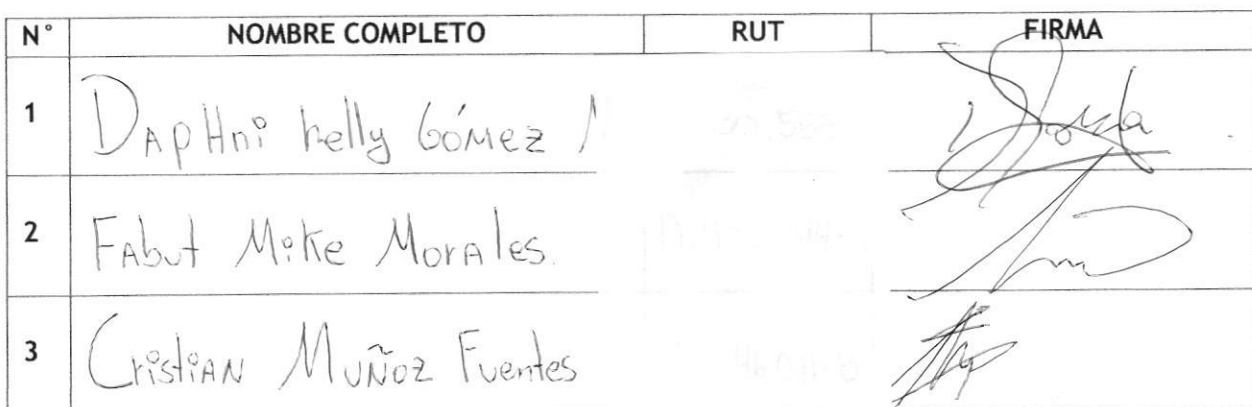 N° NOMBRE COMPLETO RUT FIRMA
1 DAPHni kelly GóMez
2 FAbut Mike MorAles.
3 CristiAN MuÑoz Fuentes